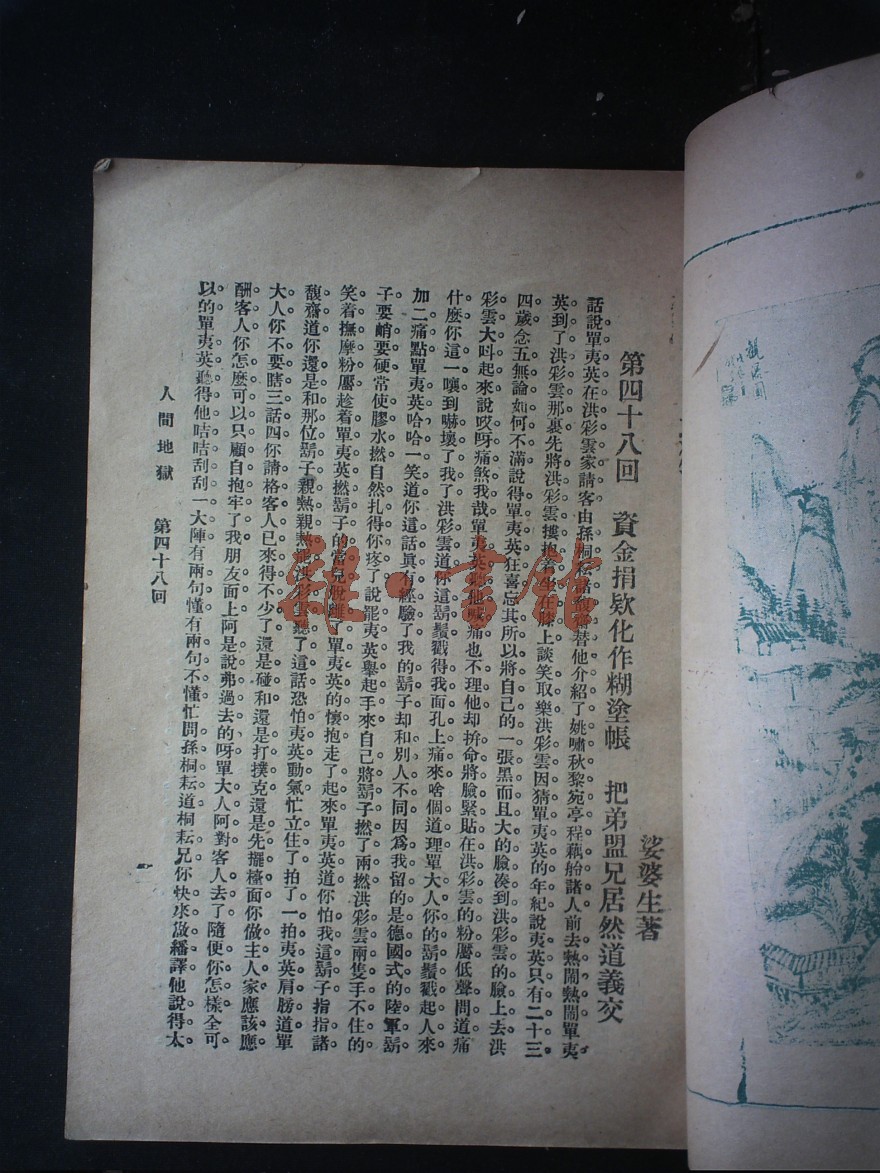 娑婆生著
第四十八回　資金捐欵化作糊塗帳　把弟盟兄居然道義交
話說單夷英在洪彩雲家請客由孫桐耘諸馥齋替他介紹了姚嘯秋黎宛亭程藕舲諸人前去熱鬧熱鬧單夷
英到了洪彩雲那裏先將洪彩雲摟抱着坐在膝上談笑取樂洪彩雲因猜單夷英的年紀說夷英只有二十三
四歲念五無論如何不滿說得單夷英狂喜忘其所以將自己的一張黑而且大的臉湊到洪彩雲的臉上去洪
彩雲大呌起來說哎呀痛煞我哉單夷英聽他喊痛也不理他却拚命將臉緊貼在洪彩雲的粉靨低聲問道痛
什麽你這一嚷到嚇壞了我了洪彩雲道你這鬍鬚戳得我面孔上痛來啥個道理單大人你的鬍鬚戳起人來
加二痛點單夷英哈哈一笑道你這話眞有經驗了我的鬍子却和別人不同因爲我留的是德國式的陸軍鬍
子要峭要硬常使膠水撚自然扎得你疼了說罷夷英舉起手來自己將鬍子撚了兩撚洪彩雲兩隻手不住的
笑着撫摩粉靨趁着單夷英撚鬍子的當兒脫離了單夷英的懷抱走了起來單夷英道你怕我這鬍子指指諸
馥齋道你還是和那位鬍子親熱親熱罷洪彩雲聽了這話恐怕夷英動氣忙立住了拍了一拍夷英肩膀道單
大人你不要瞎三話四你請格客人已來得不少了還是碰和還是打撲克還是先擺檯面你做主人家應該應
酬客人你怎麽可以只顧自抱牢了我朋友面上阿是說弗過去的呀單大人阿對客人去了隨便你怎樣全可
以的單夷英聽得他咭咭刮刮一大陣有兩句懂有兩句不懂忙問孫桐耘道桐耘兄你快來做繙譯他說得太
人間地獄　第四十八回
一
雜·書館